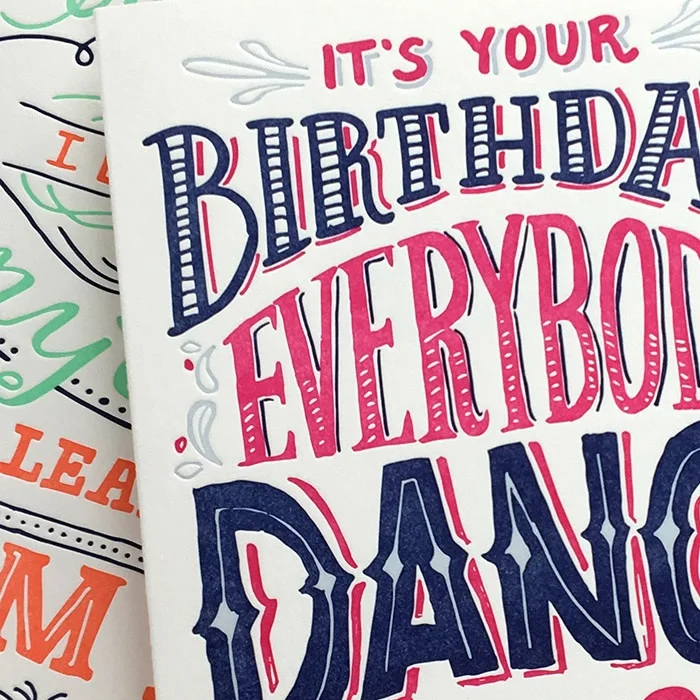 IT'S YOUR
BIRTHDA
EVERYBOD
DANC
I
LEA
M